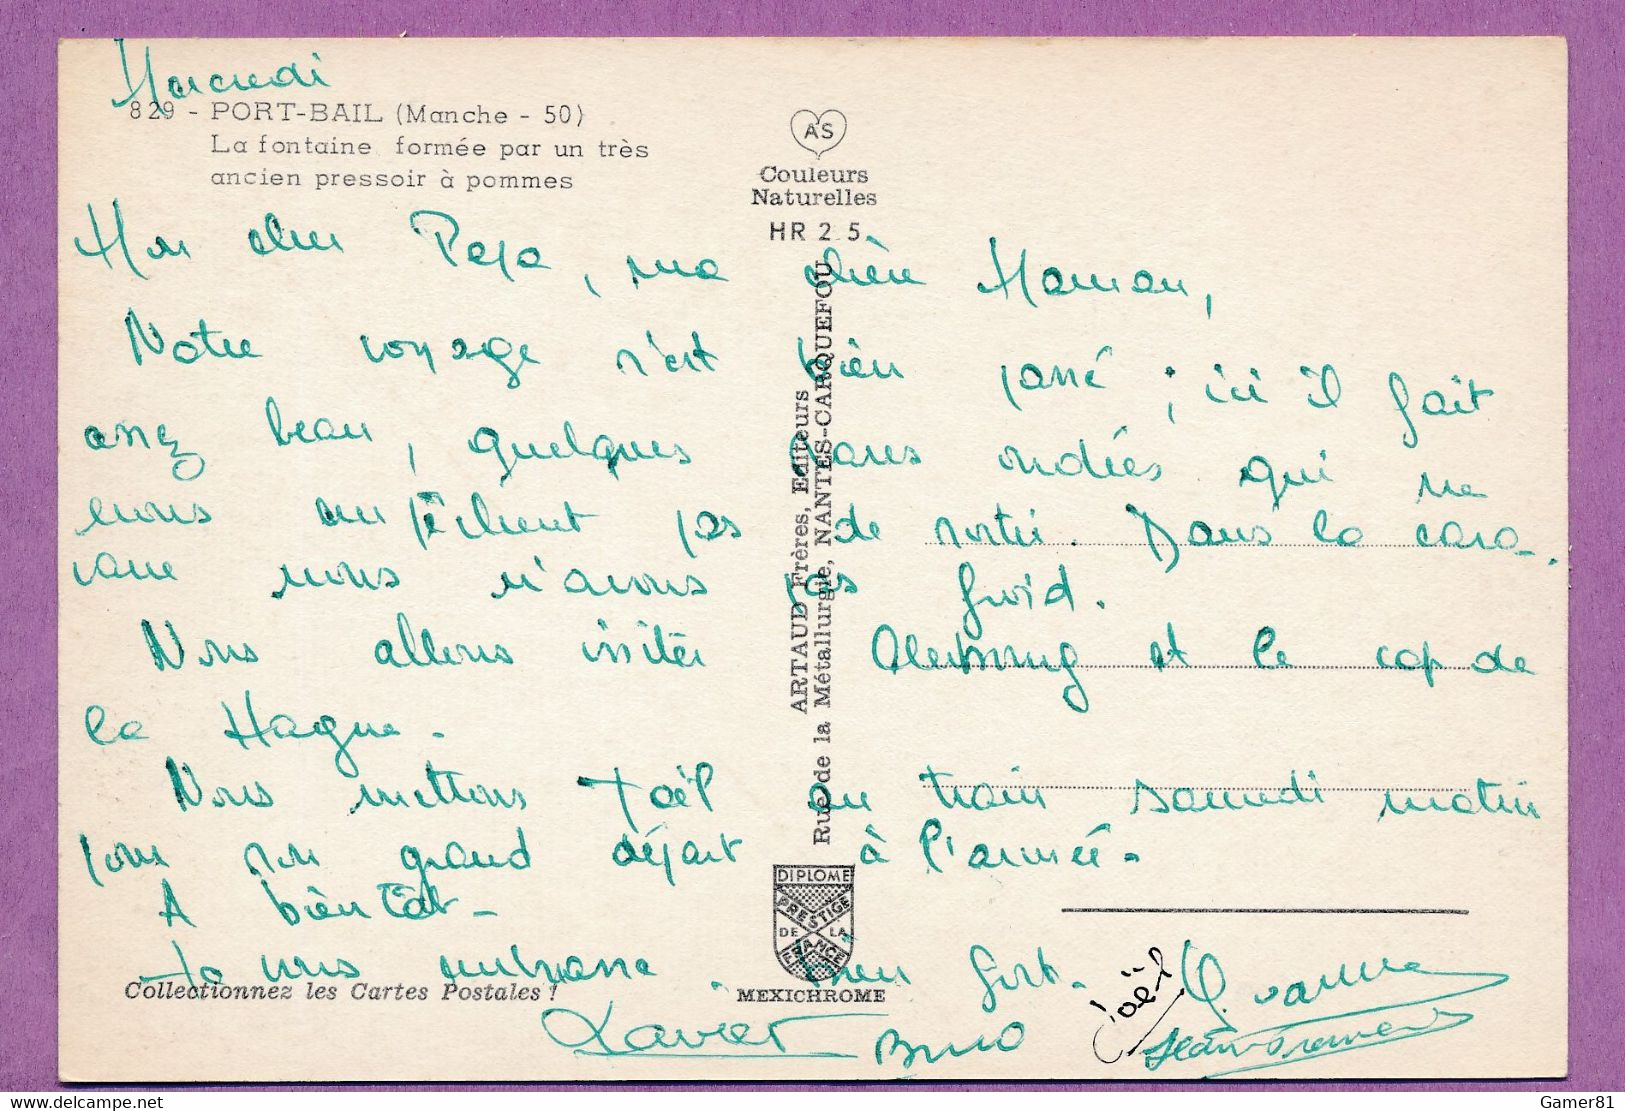 Mercredi
829 - PORT-BAIL (Manche - 50)
La fontaine formée par un très
ancien pressoir à pommes
AS
Couleurs
Naturelles
HR 2 5
Mon cher Papa, ma chère Maman,
Notre voyage s'est bien passé ; ici il fait
assez beau, quelques rares ondées qui ne
nous empêchent pas de sortir. Dans la cara-
vane nous n'avons pas froid.
Nous allons visiter Cherbourg et le cap de
la Hague.
Nous mettons Joël au train samedi matin
pour son grand départ à l'armée.
A bientôt.
Je vous embrasse bien fort.
Joël
Xavier Bruno
ARTAUD Frères, Editeurs
Rue de la Métallurgie, NANTES-CARQUEFOU
DIPLOME
PRESTIGE
DE LA
FRANCE
Collectionnez les Cartes Postales !
MEXICHROME
Gamer81
delcampe.net